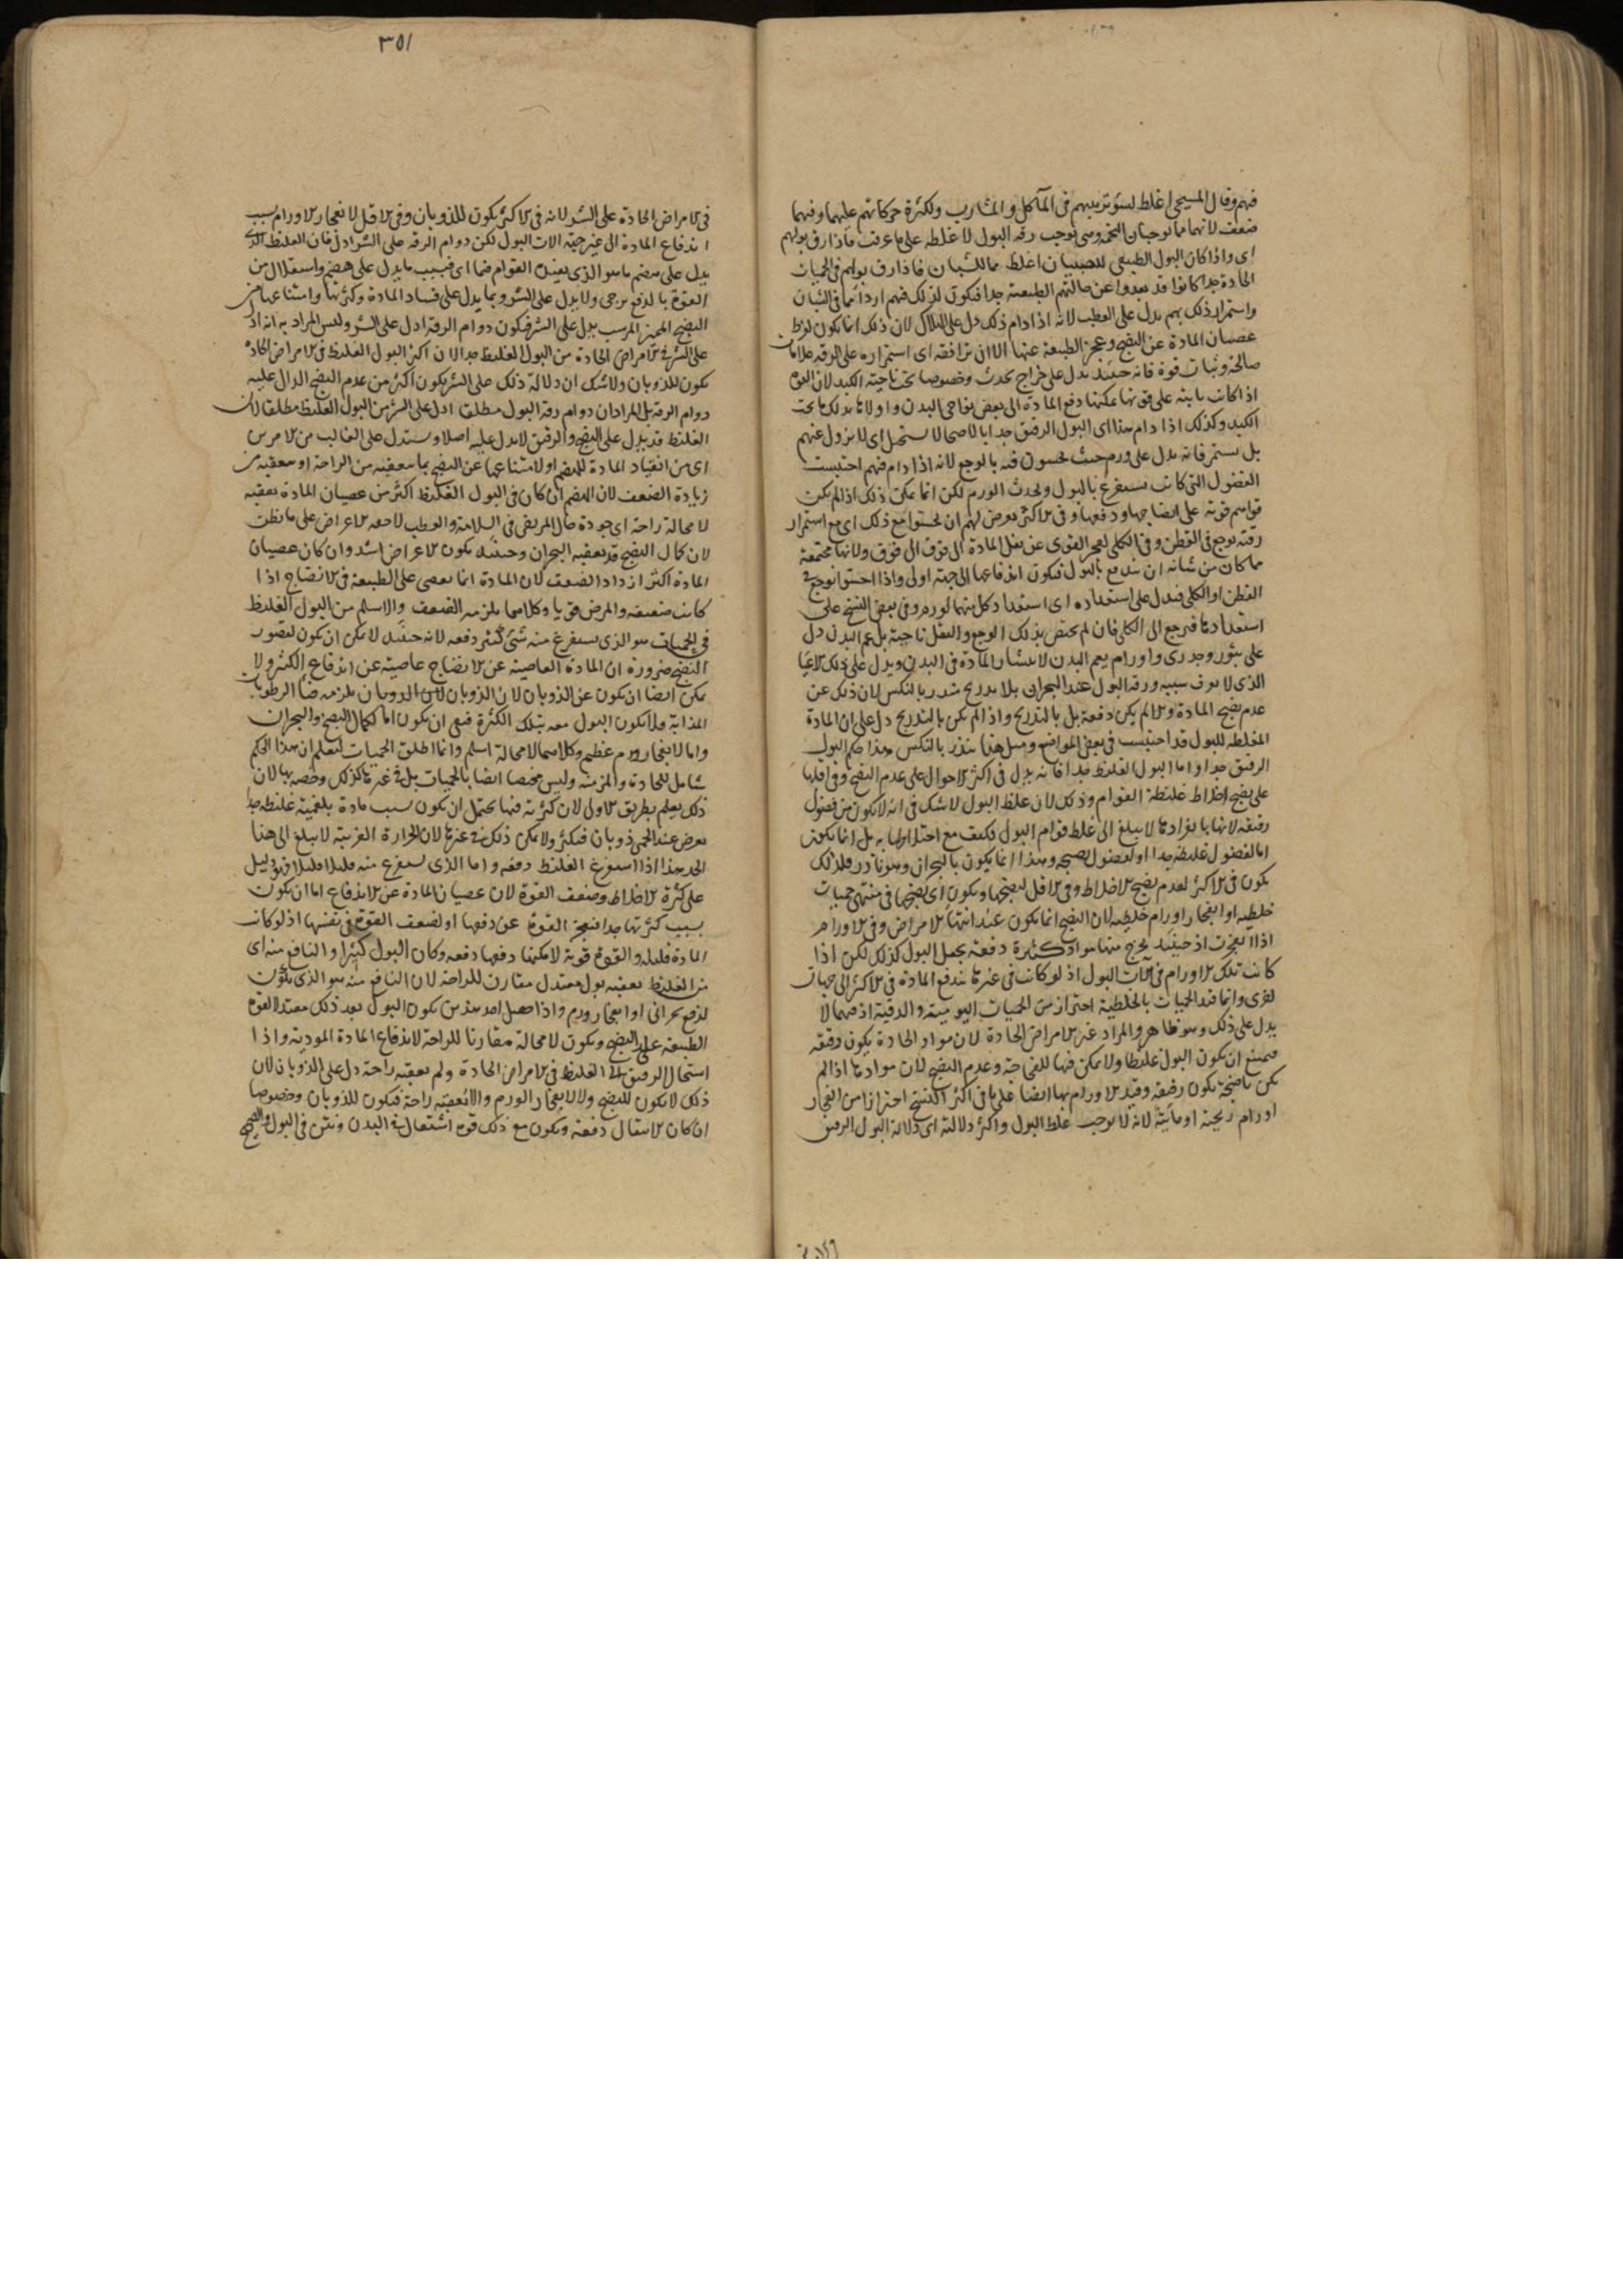 فيهم وقال المسيحي اغلظ لسوء تربيتهم في المآكل والمشارب ولكثرة حركاتهم عليهما وفيهما
ضعف لانهما مما يوجبان التخمة وهي توجب رقة البول لا غلظه على ما عرفت فاذا رق بولهم
اى واذا كان البول الطبيعي للصبيان اغلظ مما للشبان فاذا رق بولهم في الحميات
الحادة جدا كانوا قد بعدوا عن حالتهم الطبيعية جدا فيكون لذلك فيهم اردأ مما في الشبان
واستمرار ذلك بهم يدل على العطب لانه اذا دام ذلك دل على الهلاك لان ذلك انما يكون لفرط
عصيان المادة عن النضج وعجز الطبيعة عنها الا ان ترافقه اى استمراره على الرقة علامات
صالحة وثبات قوة فانه حينئذ يدل على خراج يحدث وخصوصا تحت ناحية الكبد لان القوة
اذا كانت ثابتة على قوتها يمكنها دفع المادة الى بعض نواحي البدن واولاها بذلك ما تحت
الكبد وكذلك اذا دام هذا اى البول الرقيق جدا بالاصحا لا يستحيل اى لا يزول عنهم
بل يستمر فانه يدل على ورم حيث يحسون فيه بالوجع لانه اذا دام فيهم احتبست
الفضول التي كانت تستفرغ بالبول ويحدث الورم لكن انما يمكن ذلك اذا لم يكن
قواهم قوية على انضاجها ودفعها وفي الاكثر يعرض لهم ان يحسوا مع ذلك اى مع استمرار
رقته بوجع في القطن وفي الكلى لعجز القوى عن نقل المادة الى فوق ولانها مجتمعة
مما كان من شانه ان يندفع بالبول فيكون اندفاعها الى جهته اولى واذا احسوا بوجع في
القطن او الكلى فيدل على استعداده اى استعداد كل منهما لورم وفي بعض النسخ على
استعدادها فيرجع الى الكلى فان لم يختص بذلك الوجع والثقل ناحية بل عم البدن دل
على بثور وجدرى واورام يعم البدن لانتشار المادة في البدن ويدل على ذلك الاعيا
الذى لا يعرف سببه ورقة البول عند البحران بلا تدريج منذر بالنكس لان ذلك عن
عدم نضج المادة والا لم يكن دفعة بل بالتدريج واذا لم يكن بالتدريج دل على ان المادة
المغلظة للبول قد احتبست في بعض المواضع ومثل هذا ينذر بالنكس هذا حكم البول
الرقيق جدا واما البول الغليظ جدا فانه يدل في اكثر الاحوال على عدم النضج وفي اقلها
على نضج اخلاط غليظة القوام وذلك لان غلظ البول لا شك في انه لا يكون من فضول
رقيقة لانها بانفرادها لا يبلغ الى غلظ قوام البول فكيف مع اختلاطها به بل انما يكون
اما لفضول غليظة جدا او لفضول نضيجة وهذا انما يكون بالبحران وهو نادر فلذلك
يكون في الاكثر لعدم نضج الاخلاط وفي الاقل لنضجها ويكون اى نضجها في منتهى حميات
خلطية او انفجار اورام خلطية لان النضج انما يكون عند انتها الامراض وفي الاورام
اذا انفجرت اذ حينئذ يخرج منها مواد كثيرة دفعة يجعل البول كذلك لكن اذا
كانت تلك الاورام في الات البول اذ لو كانت في غيرها يندفع المادة في الاكثر الى جهات
اخرى وانما قيد الحميات بالخلطية احتراز من الحميات اليومية والدقية اذ فيهما لا
يدل على ذلك وهو ظاهر والمراد غير الامراض الحادة لان مواد الحادة يكون رقيقة
فيمتنع ان يكون البول غليظا ولا يمكن فيها للفجاجة وعدم النضج لان موادها اذا لم
يكن ناضجة يكون رقيقة وقيد الاورام بها ايضا على ما في اكثر النسخ احترازا من انفجار
اورام ريحية او مائية لانه لا يوجب غلظ البول واكثر دلالته اى دلالة البول الرقيق
٣٥١
في الامراض الحادة على الشر لانه في الاكثر يكون للذوبان وفي الاقل لانفجار الاورام بسبب
اندفاع المادة الى غير جهة الات البول لكن دوام الرقة على الشر ادل فان الغليظ الذى
يدل على هضم ما هو الذى يفيد القوام فما اى فبسبب ما يدل على هضم واستقلال من
القوة بالدفع يرجى ولا يدل على الشر وبما يدل على فساد المادة وكثرتها وامتناعها من
النضج المميز المرسب يدل على الشر فيكون دوام الرقة ادل على الشر وليس المراد به انه ادل
على الشر في الامراض الحادة من البول الغليظ جدا لان اكثر البول الغليظ في الامراض الحادة
يكون للذوبان ولا شك ان دلالة ذلك على الشر يكون اكثر من عدم النضج الدال عليه
دوام الرقة بل المراد ان دوام رقة البول مطلقا ادل على الشر من البول الغليظ مطلقا لان
الغليظ قد يدل على النضج والرقيق لا يدل عليه اصلا ويستدل على الغالب من الامرين
اى من انقياد المادة للهضم او لامتناعها عن النضج بما يتعقبه من الراحة او يتعقبه من
زيادة الضعف لان الهضم ان كان في البول الغليظ اكثر من عصيان المادة يعقبه
لا محالة راحة اى جودة حال المريض في السلامة والعطب لا خفة الاعراض على ما يظن
لان كمال النضج قد يعقبه البحران وحينئذ يكون الاعراض اشد وان كان عصيان
المادة اكثر ازداد الضعف لان المادة انما تعصى على الطبيعة في الانضاج اذا
كانت ضعيفة والمرض قويا وكلاهما يلزمه الضعف والاسلم من البول الغليظ
في الحميات هو الذى يستفرغ منه شئ كثير دفعة لانه حينئذ لا يمكن ان يكون لقصور
النضج ضرورة ان المادة العاصية عن الانضاج عاصية عن اندفاع الكثير ولا
يمكن ايضا ان يكون عن الذوبان لان الذوبان يلزمه فنا الرطوبات
المذابة فلا يكون البول معه بتلك الكثرة فبقى ان يكون اما لكمال النضج والبحران
واما لانفجار ورم عظيم وكلاهما لا محالة اسلم وانما اطلق الحميات ليعلم ان هذا الحكم
شامل للحادة والمزمنة وليس مختصا ايضا بالحميات بل في غيرها كذلك وخصه بها لان
ذلك يعلم بطريق الاولى لان كثرته فيها يحتمل ان يكون بسبب مادة بلغمية غليظة جدا
يعرض عند الحمى ذوبان فيكثر ولا يمكن ذلك في غيرها لان الحرارة الغريبة لا يبلغ الى هذا
الحد هذا اذا استفرغ الغليظ دفعة واما الذى يستفرغ منه قليلا قليلا فهو دليل
على كثرة الاخلاط وضعف القوة لان عصيان المادة عن الاندفاع اما ان يكون
بسبب كثرتها جدا فيعجز القوة عن دفعها او لضعف القوة في نفسها اذ لو كانت
المادة قليلة والقوة قوية لامكنها دفعها دفعة وكان البول كثيرا والنافع منه اى
من الغليظ يعقبه بول معتدل مقارن للراحة لان النافع منه هو الذى يكون
لدفع بحرانى او انفجار ورم واذا حصل احد هذين يكون البول بعد ذلك معتدلا لقوة
الطبيعة على النضج ويكون لا محالة مقارنا للراحة لاندفاع المادة الموذية واذا
استحال الرقيق الى الغليظ في الامراض الحادة ولم يعقبه راحة دل على الذوبان لان
ذلك لا يكون للنضج ولا لانفجار الورم والا لعقبته راحة فيكون للذوبان وخصوصا
ان كان الانتقال دفعة ويكون مع ذلك قوة اشتعال في البدن ونتن في البول والصحيح